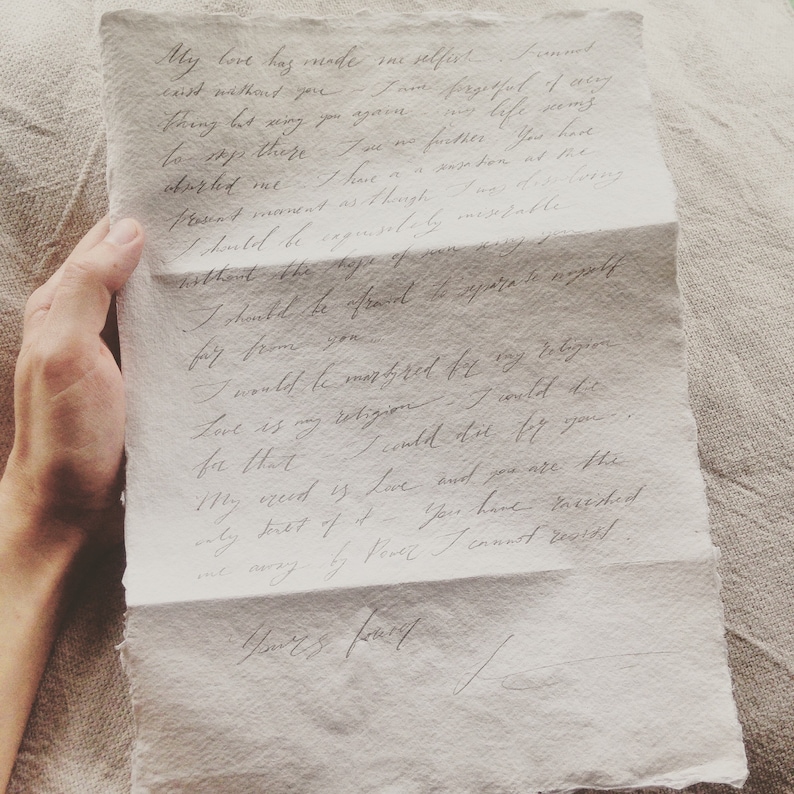 My love has made me selfish. I cannot
exist without you – I am forgetful of every
thing but seeing you again my life seems
to stop there I see no further You have
absorbed me. I have a a sensation at the
present moment as though I was dissolving
I should be exquisitely miserable
without the hope of soon seeing you.
I should be afraid to separate myself
far from you.
I would be martyred for my religion
Love is my religion – I could die
for that I could die for you.
My creed is Love and you are the
only tenet of it – You have ravished
me away by Power I cannot resist.
Yours